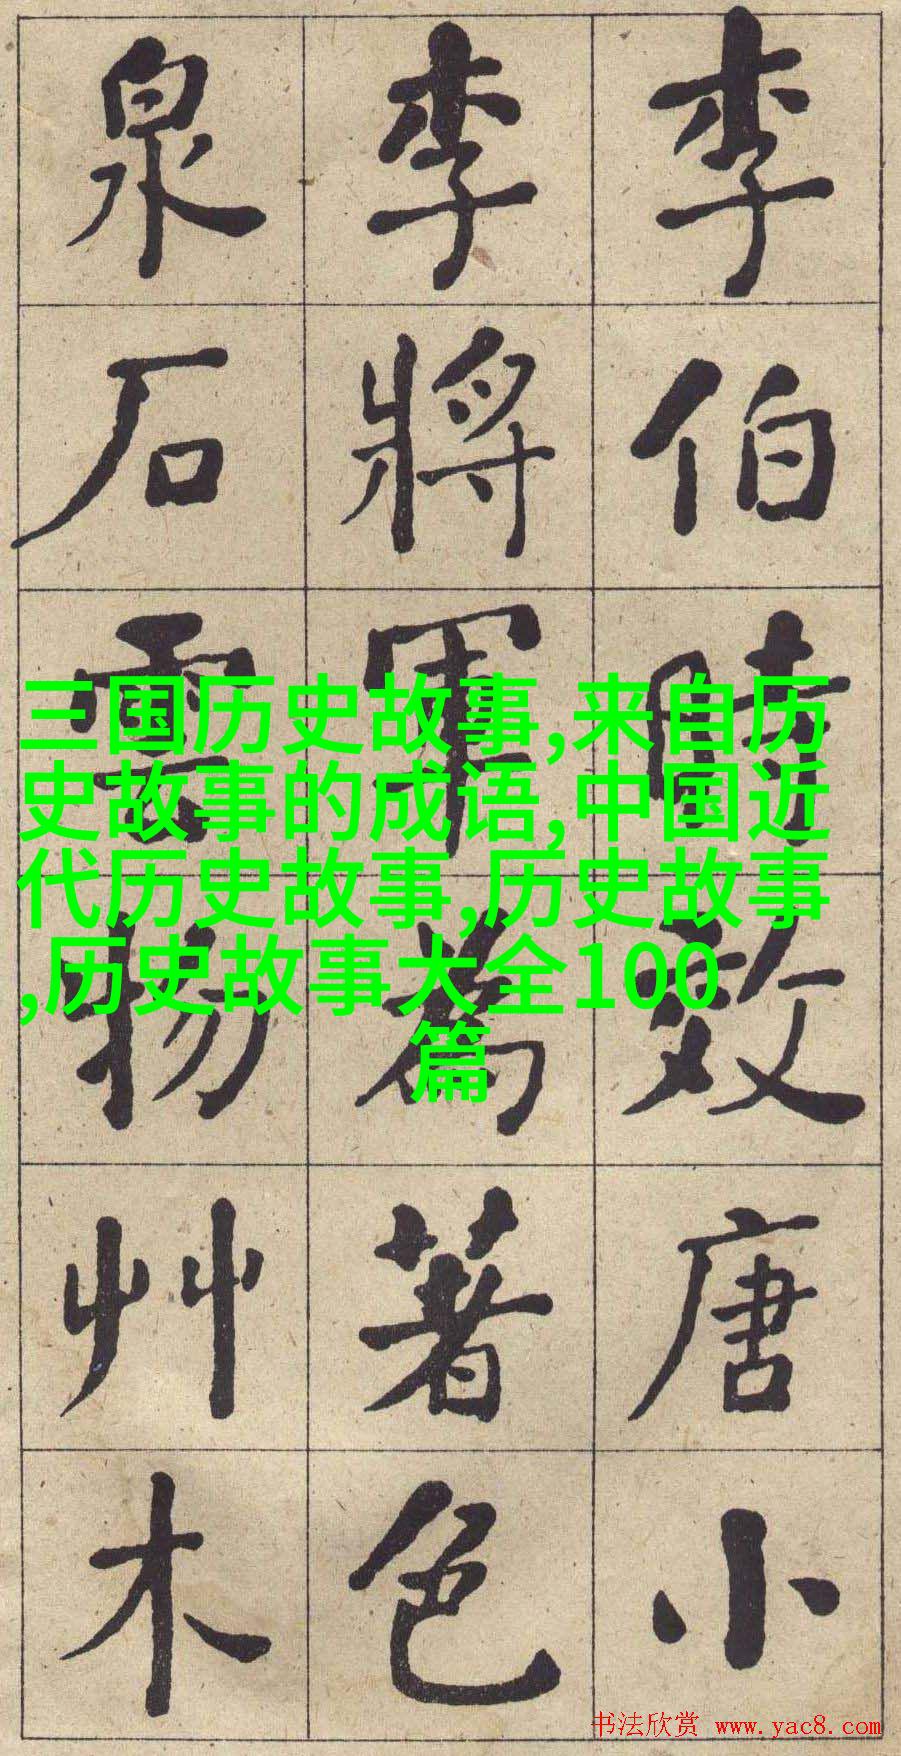 李伯時效唐小
李將軍為著色
泉石雲物艸木
三国历史故事,来自历
史故事的成语,中国近
代历史故事,历史故事
,历史故事大全100
篇
书法欣赏 www.yac8.com